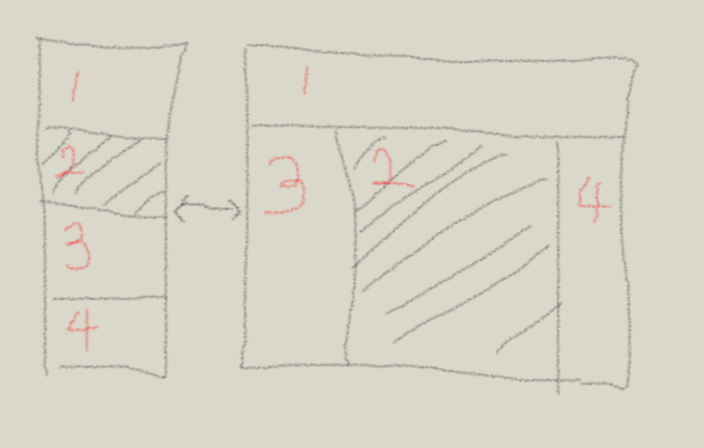 1
2
3
4
1
3 2 4